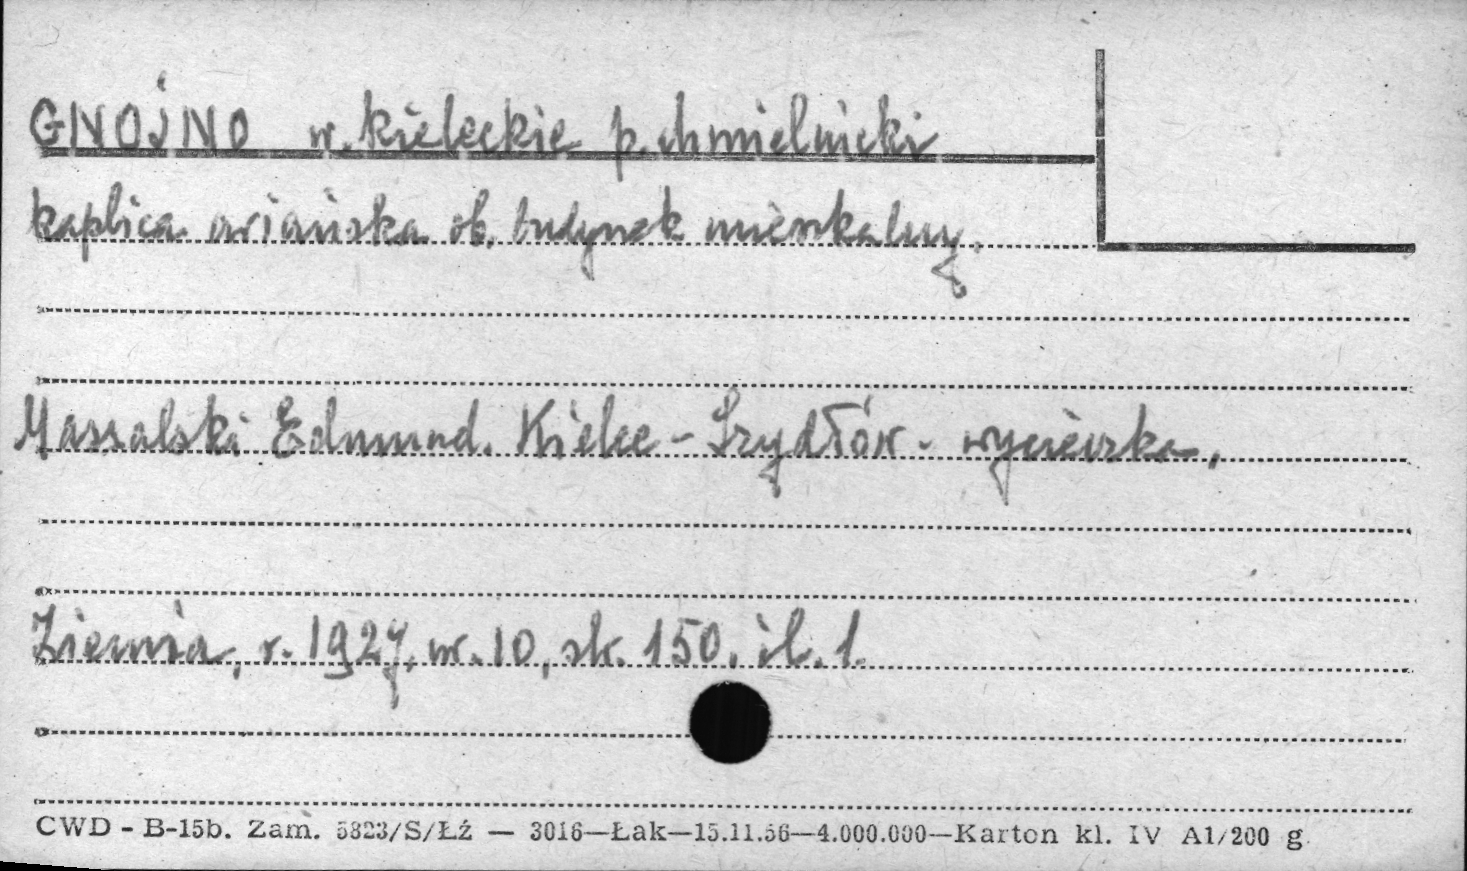 GNOJNO w. kieleckie p. chmielnicki
kaplica ariańska ob. budynek mieszkalny.
Massalski Edmund. Kielce - Szydłów - wycieczka.
Ziemia, r. 1927, nr. 10, str. 150, il. 1.
CWD - B-15b. Zam. 5823/S/Łź — 3016—Łak—15.11.56—4.000.000—Karton kl. IV A1/200 g